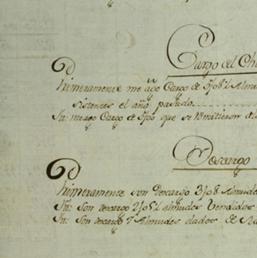 Cargo del Ch
Primeramente me ago Cargo de
sistentes el año pasado
Yt: me ago Cargo de que se remitieron
Descargo
Primeramente son descargo Almudes
Yt: Son descargo almudes vendidos
Yt: Son descargo 7 Almudes dados de